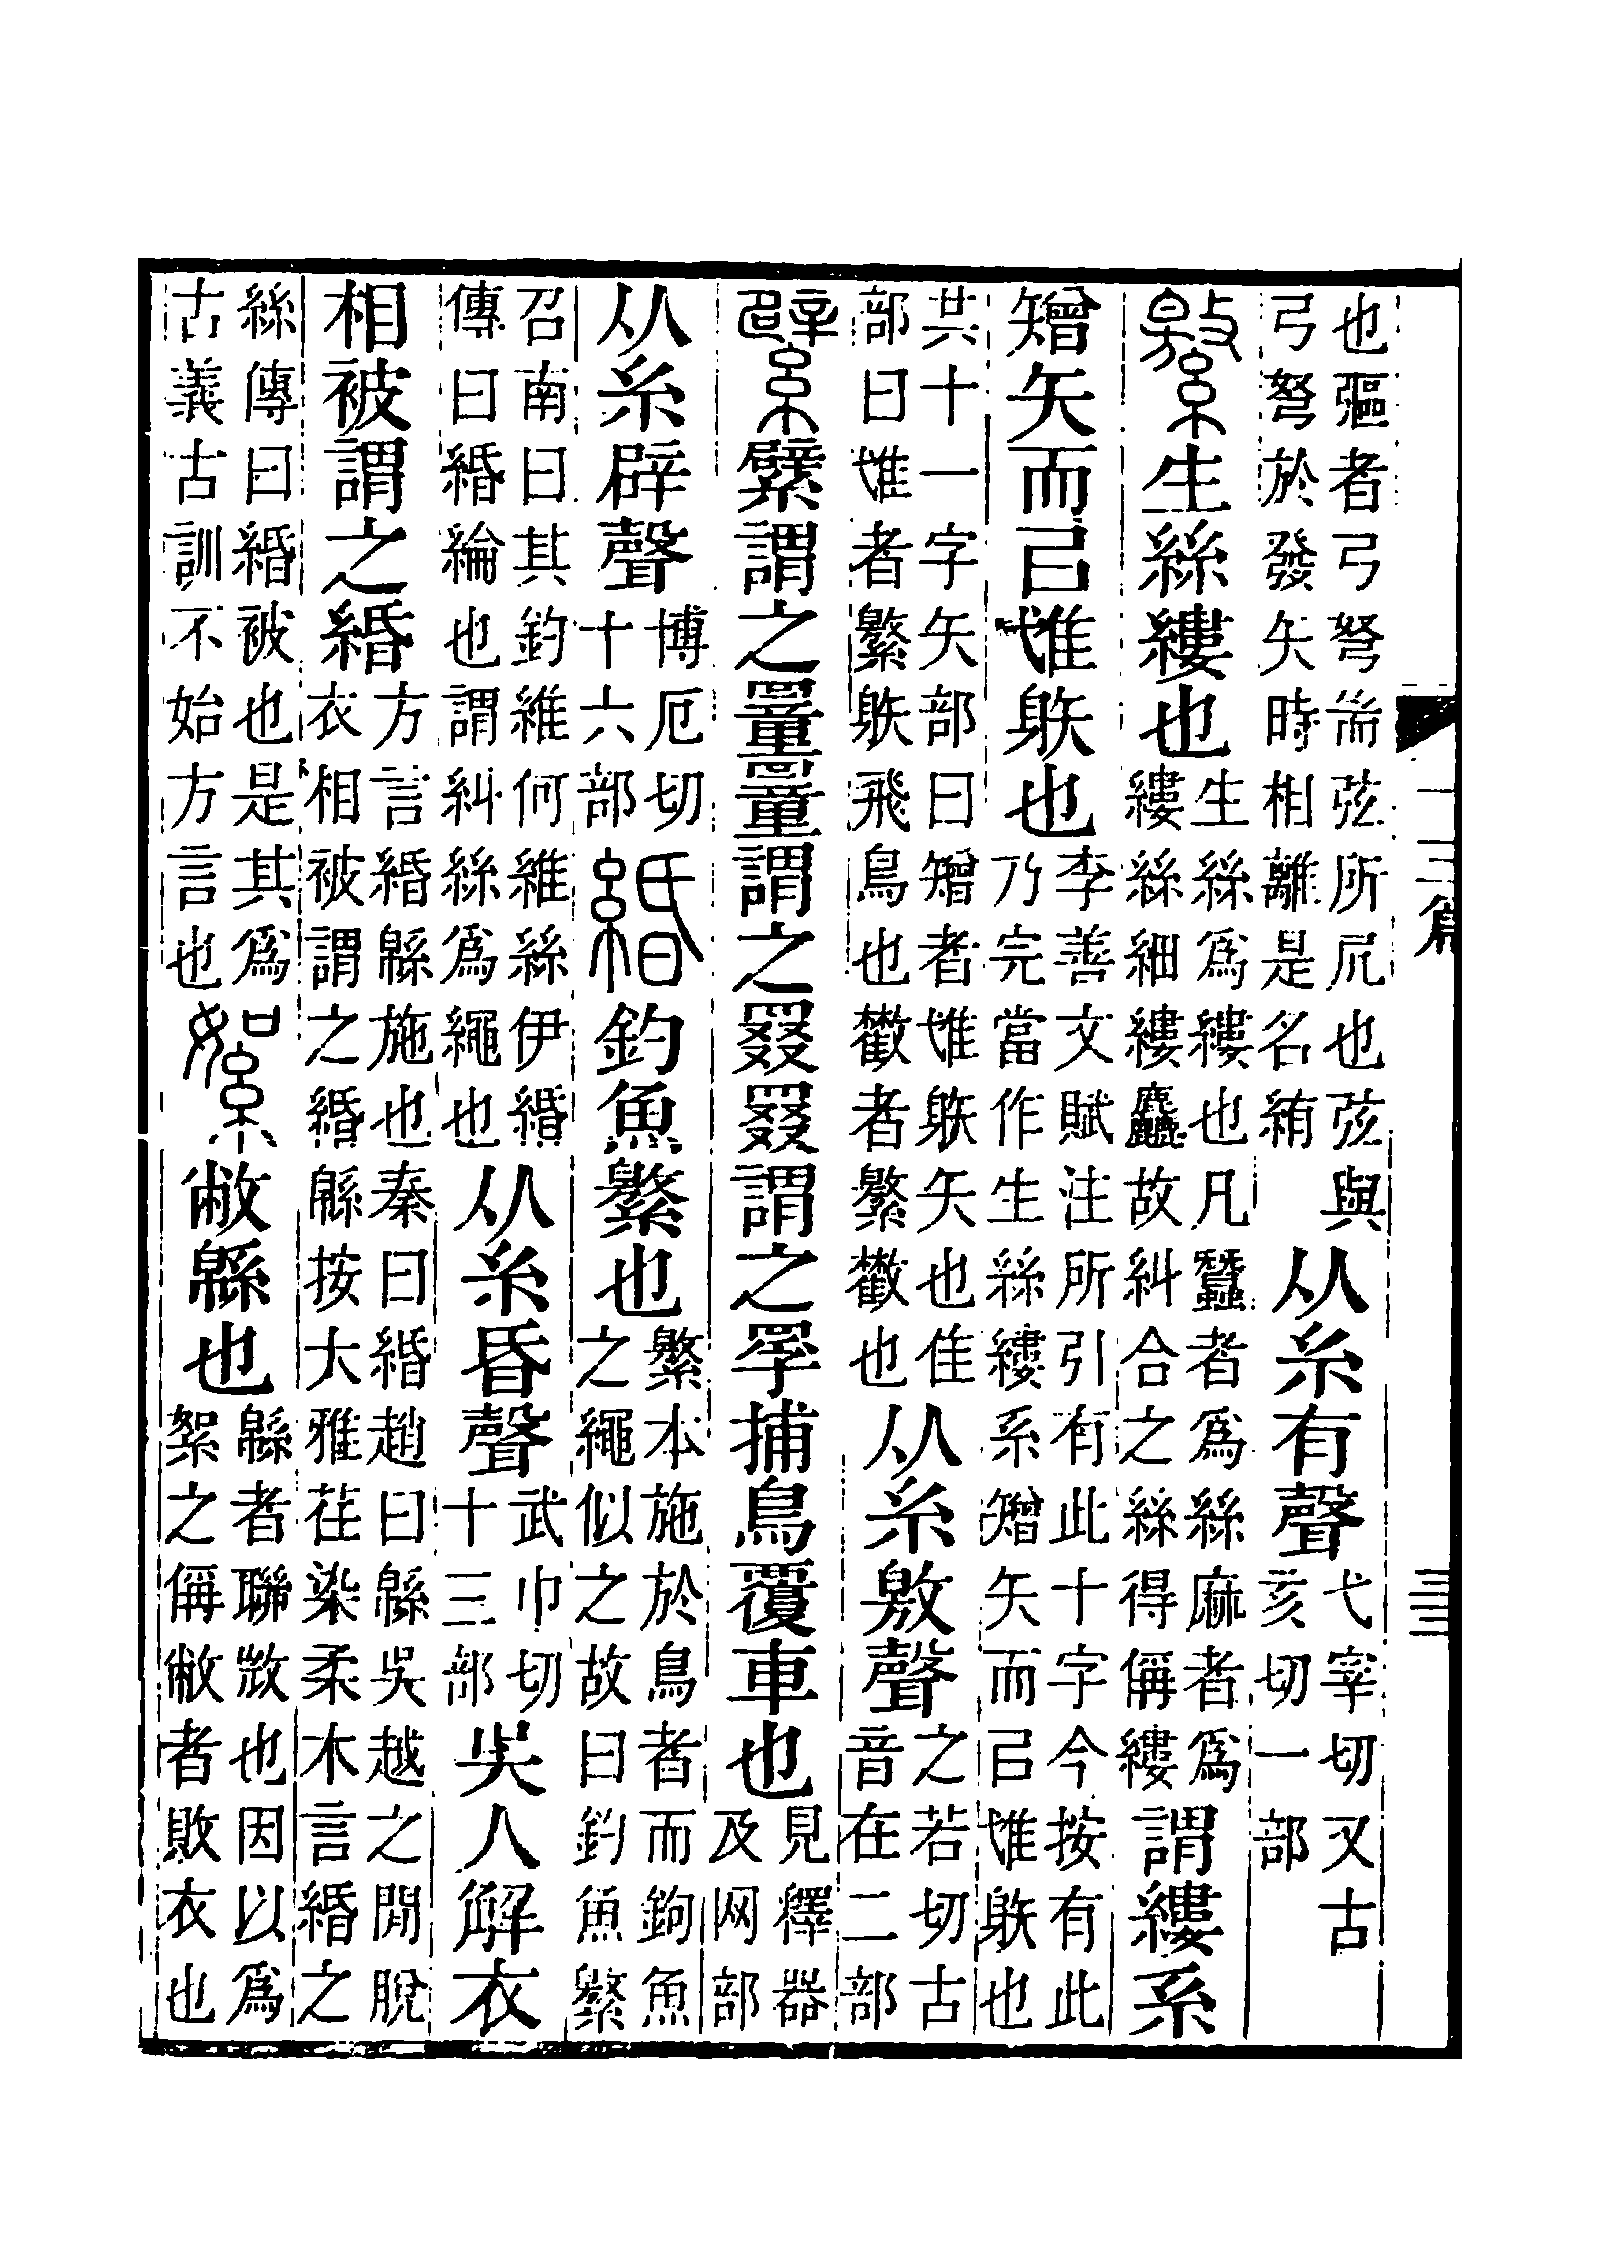 也彄者弓弩耑弦所凥也弦與弓弩於發矢時相離是名䋂从糸有聲弋宰切又古亥切一部
繳生絲縷也生絲爲縷也凡蠶者爲絲麻者爲縷絲細縷麤故糾合之絲得偁縷謂縷系
矰矢而㠯隿䠶也李善文賦注所引有此十字今按有此乃完當作生絲縷系矰矢而㠯隿䠶也
共十一字矢部曰矰者隿䠶矢也隹部曰隿者繳䠶飛鳥也者繳也从糸敫聲之若切古音在二部
繴繴謂之罿罿謂之罬罬謂之罦捕鳥覆車也見釋器及网部
从糸辟聲博厄切十六部緍釣魚繳也繳本施於鳥者而鉤魚之繩似之故曰釣魚繳
召南曰其釣維何維絲伊緍傳曰緍綸也謂糾絲爲繩也从糸昏聲武巾切十三部吳人解衣
相被謂之緍方言緍緜施也秦曰緍趙曰緜吳越之閒脫衣相被謂之緍緜按大雅荏染柔木言緍之
絲傳曰緍被也是其爲古義古訓不始方言也絮敝緜也緜者聯㪔也因以爲絮之偁敝者敗衣也